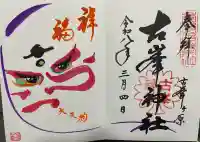 奉拝
古峯ヶ原
古峯神社
令和八年三月四日
祥
福
大天狗